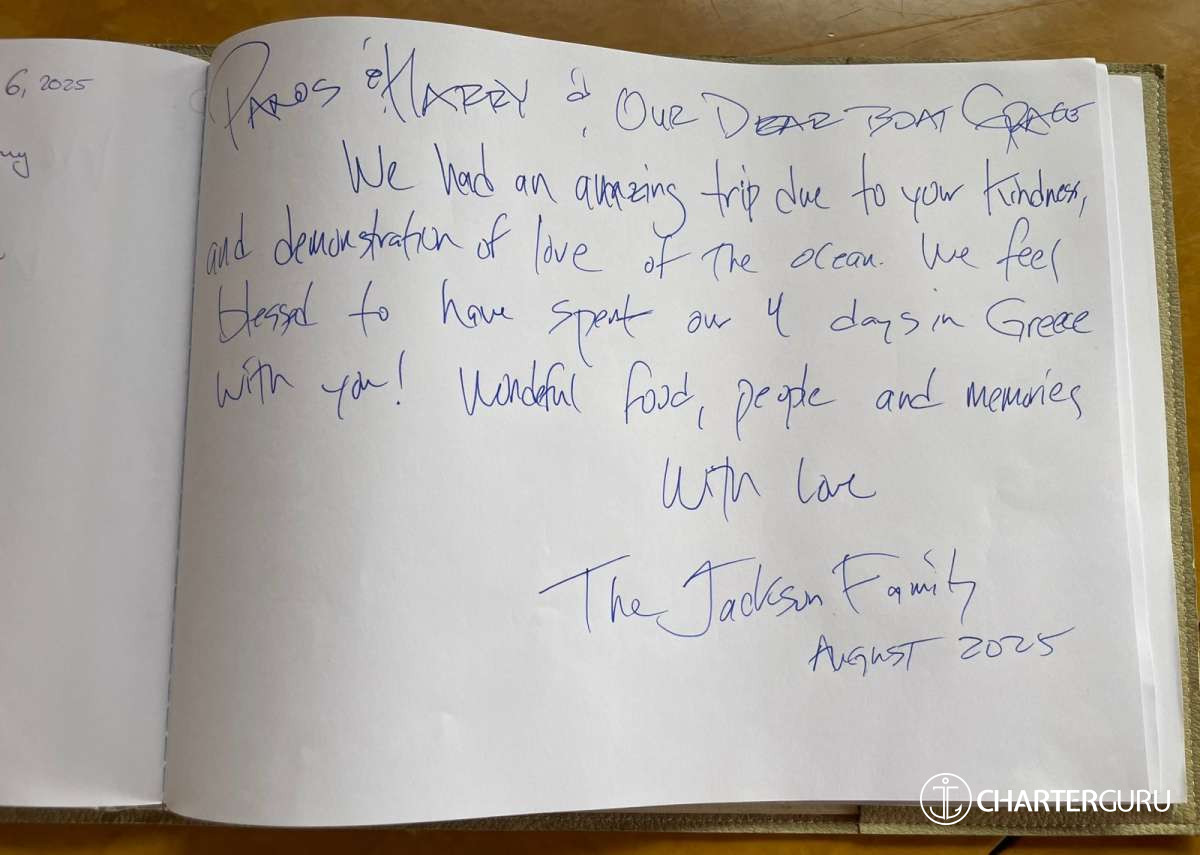 6, 2025
PAROS & HARRY & OUR DEAR BOAT GRACE
We had an amazing trip due to your kindness,
and demonstration of love of the ocean. We feel
blessed to have spent our 4 days in Greece
with you! Wondeful food, people and memories
With Love
The Jackson Family
AUGUST 2025
CHARTERGURU